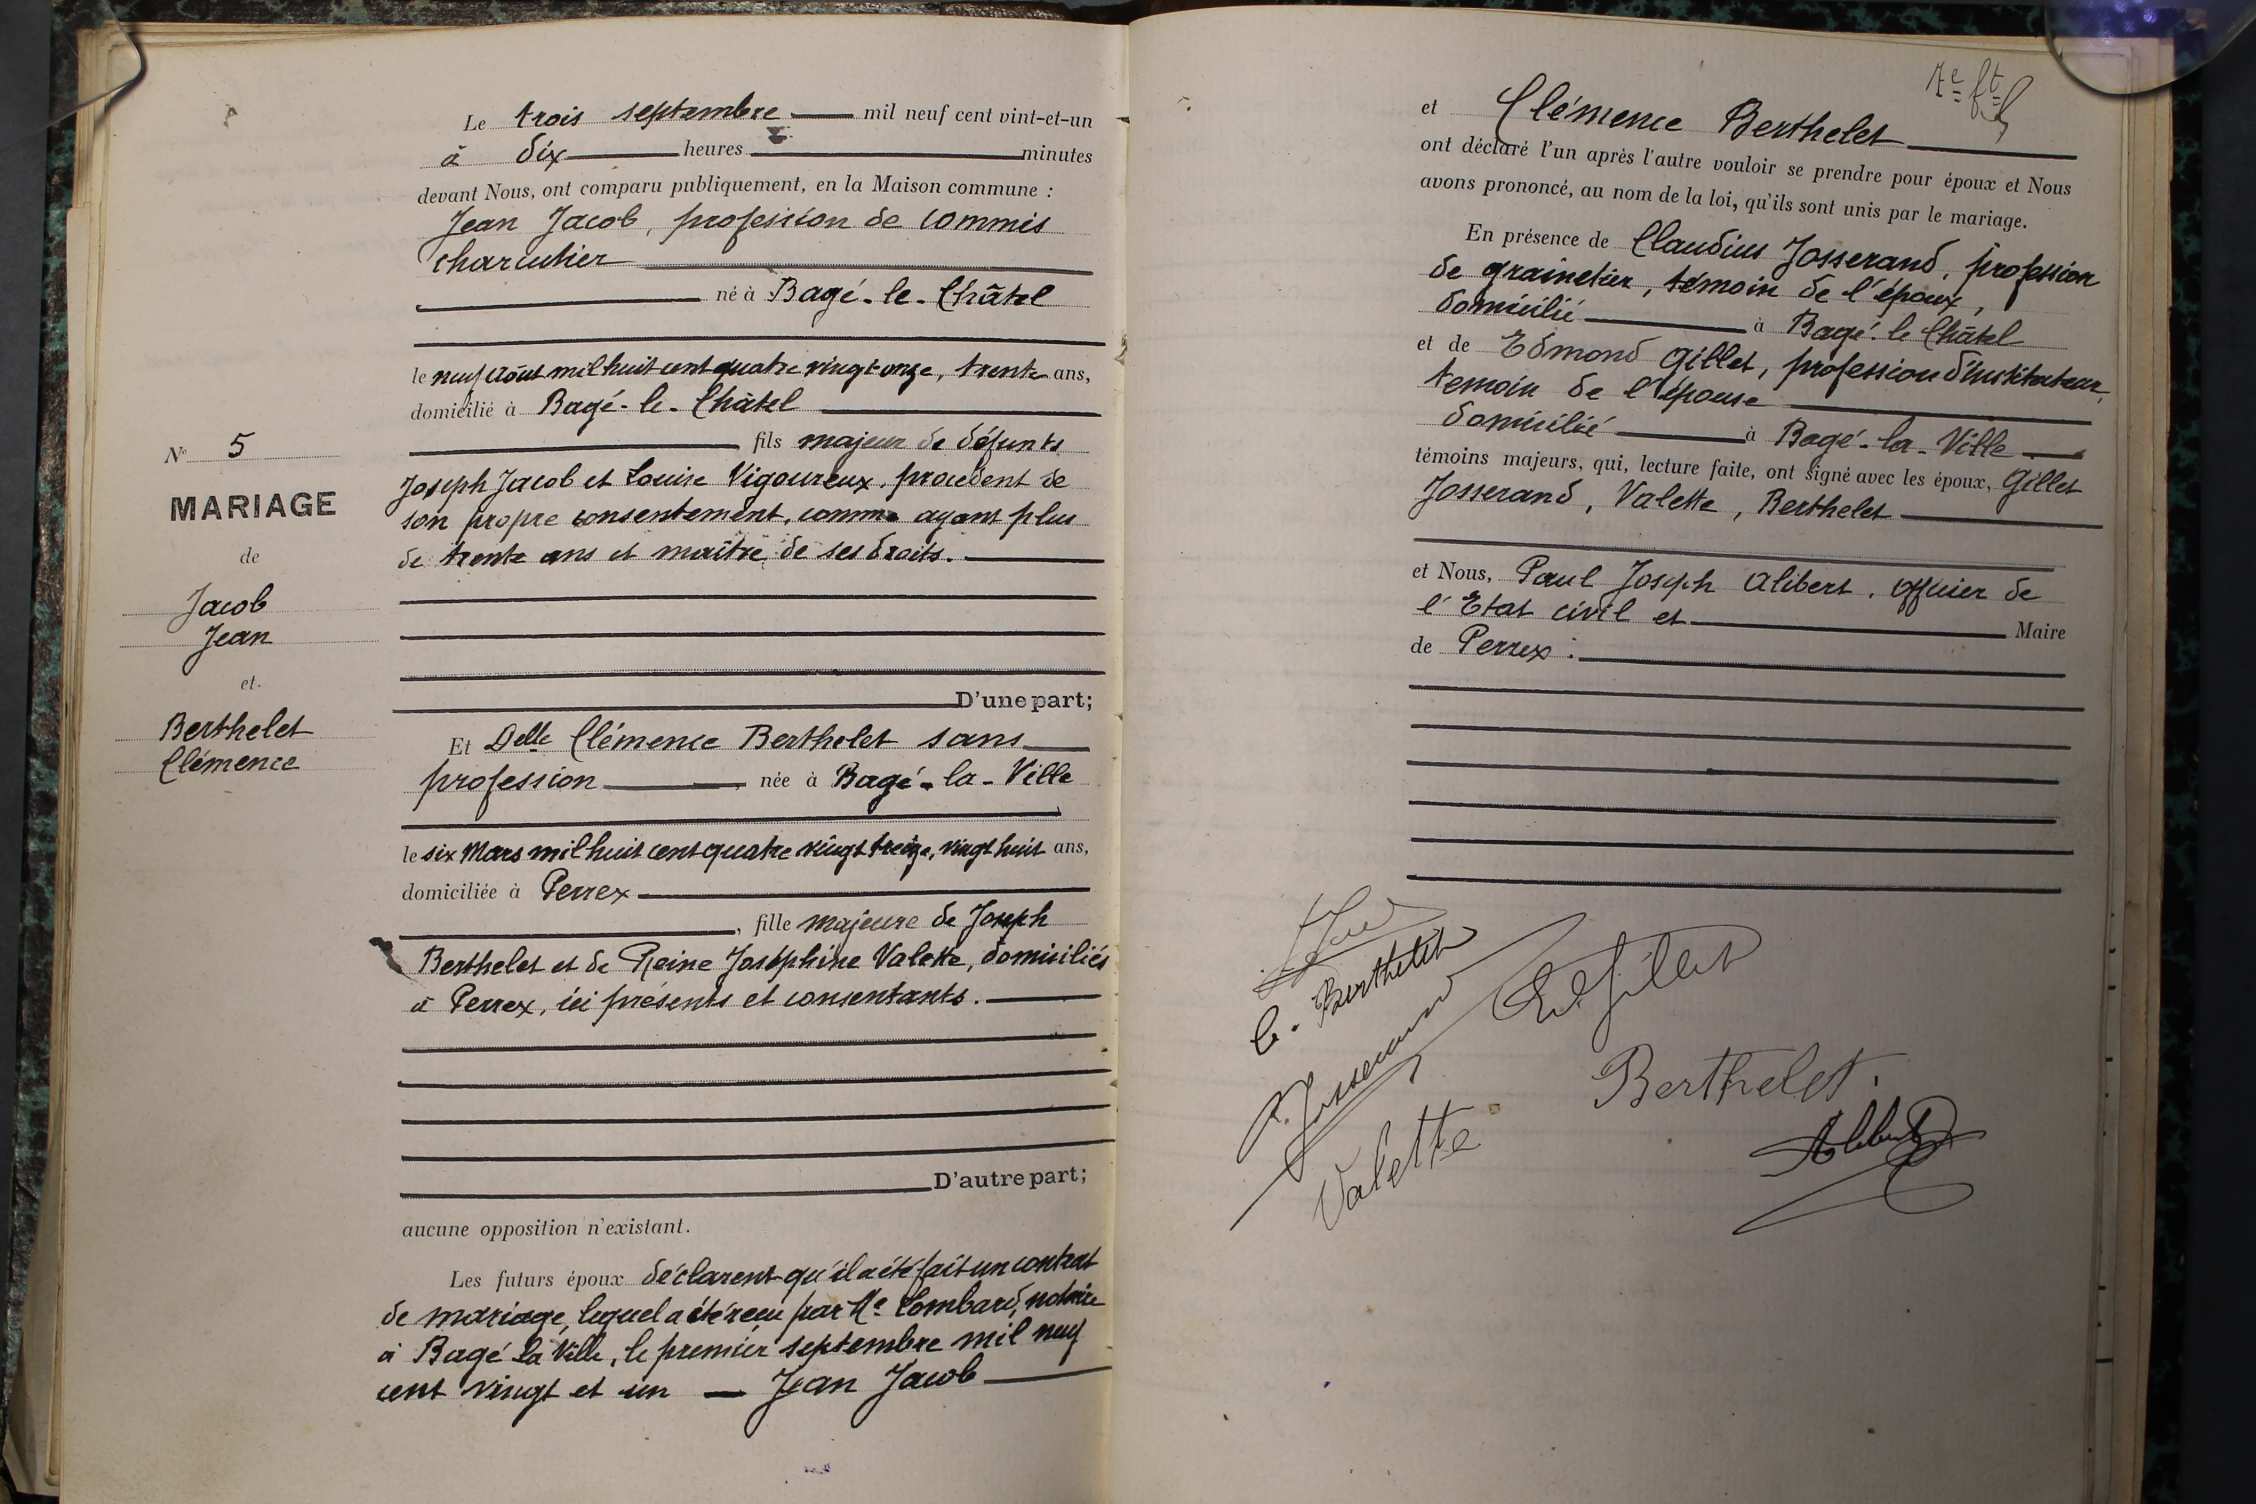 Le trois septembre mil neuf cent vint-et-un
à dix heures minutes
devant Nous, ont comparu publiquement, en la Maison commune :
Jean Jacob, profession de commis
charcutier
né à Bagé-le-Châtel
le neuf août mil huit cent quatre vingt onze, trente ans,
domicilié à Bagé-le-Châtel
fils majeur de défunts
Joseph Jacob et Louise Vigoureux, procédent de
son propre consentement, comme ayant plus
de trente ans et maître de ses droits.
D'une part;
Et Delle Clémence Berthelet sans
profession née à Bagé-la-Ville
le six Mars mil huit cent quatre vingt treize, vingt huit ans,
domiciliée à Perrex
, fille majeure de Joseph
Berthelet et de Reine Joséphine Valette, domiciliés
à Perrex, ici présents et consentants.
D'autre part;
aucune opposition n'existant.
Les futurs époux déclarent qu'il a été fait un contrat
de mariage, lequel a été reçu par Me Lombard, notaire
à Bagé la Ville, le premier septembre mil neuf
cent vingt et un — Jean Jacob
No 5
MARIAGE
de
Jacob
Jean
et
Berthelet
Clémence
et Clémence Berthelet
ont déclaré l'un après l'autre vouloir se prendre pour époux et Nous
avons prononcé, au nom de la loi, qu'ils sont unis par le mariage.
En présence de Claudius Josserand, profession
de grainetier, témoin de l'époux,
domicilié à Bagé-le Châtel
et de Edmond Gillet, profession d'instituteur,
temoin de l'épouse
domicilié à Bagé-la-Ville
témoins majeurs, qui, lecture faite, ont signé avec les époux, Gillet
Josserand, Valette, Berthelet
et Nous, Paul Joseph Alibert, officier de
l'Etat civil et Maire
de Perrex :
C. Berthelet
Ed. Gillet
C. Josserand
Berthelet.
Valette
Alibert